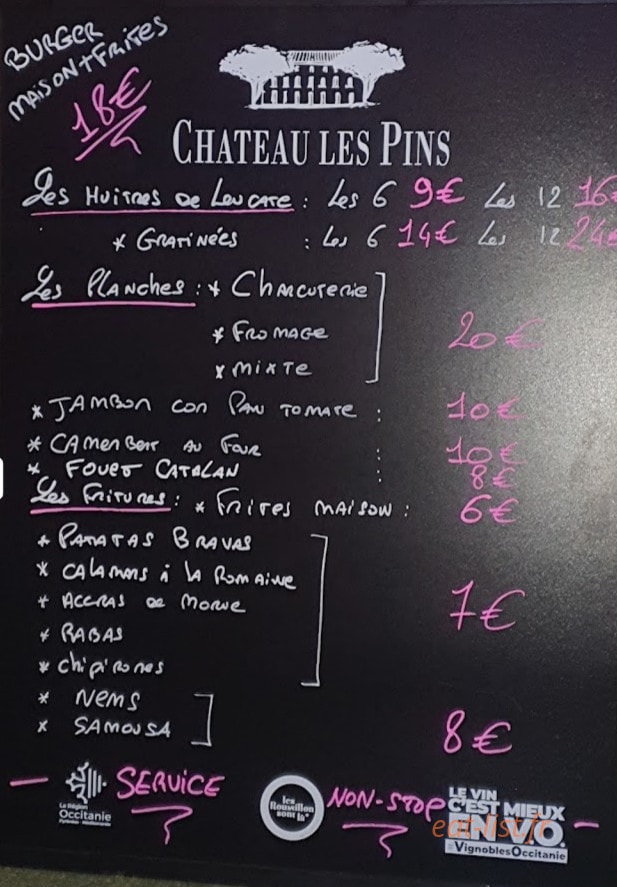 BURGER
MAISON+FRITES
18€
CHATEAU LES PINS
Les HUITRES DE LEUCATE : Les 6 9€ Les 12 16€
* GRATINÉES : Les 6 14€ Les 12 24€
Les PLANCHES : * CHARCUTERIE
* FROMAGE 20€
* MIXTE
* JAMBON CON PAN TOMATE : 10€
* CAMEMBERT AU FOUR : 10€
* FOUET CATALAN : 8€
Les FRITURES : * FRITES MAISON : 6€
* PATATAS BRAVAS
* CALAMARS à LA ROMAINE
* ACCRAS DE MORUE 7€
* RABAS
* chipirones
* NEMS
* SAMOUSA 8€
- SERVICE NON-STOP -
La Région
Occitanie
Pyrénées - Méditerranée
les
Roussillon
sont là
LE VIN
C'EST MIEUX
EN V.O.
#VignoblesOccitanie
eat-list.fr